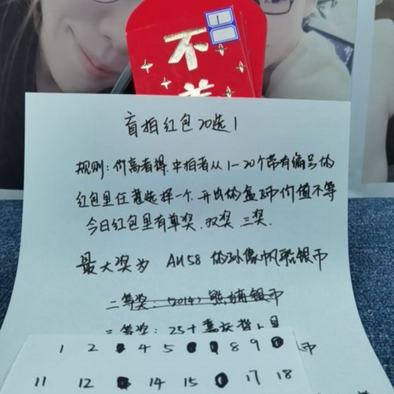 不
1
盲拍红包20选1
规则:价高者得.中拍者从1-20个带有编号的
红包里任意选择一个.开出的盒子币价值不等
今日红包里有单奖.双奖.三奖
最大奖为 AU58 的孙像帆船银币
二等奖: 2014 熊猫银币
三等奖:
币
1 2 4 5 8 9
11 12 14 15 17 18